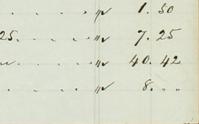 . . . . . " 1.50
25. . . . . " 7.25
. . . . " 40.42
. . . . . " 8. . .